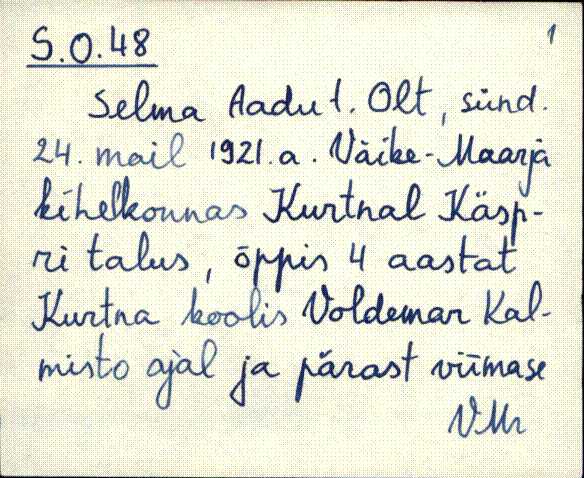 S.O.48
1
Selma Aadu t. Olt, sünd.
24. mail 1921.a. Väike-Maarja
kihelkonnas Kurtnal Käsp-
ri talus, õppis 4 aastat
Kurtna koolis Voldemar Kal-
misto ajal ja pärast viimase
VMr